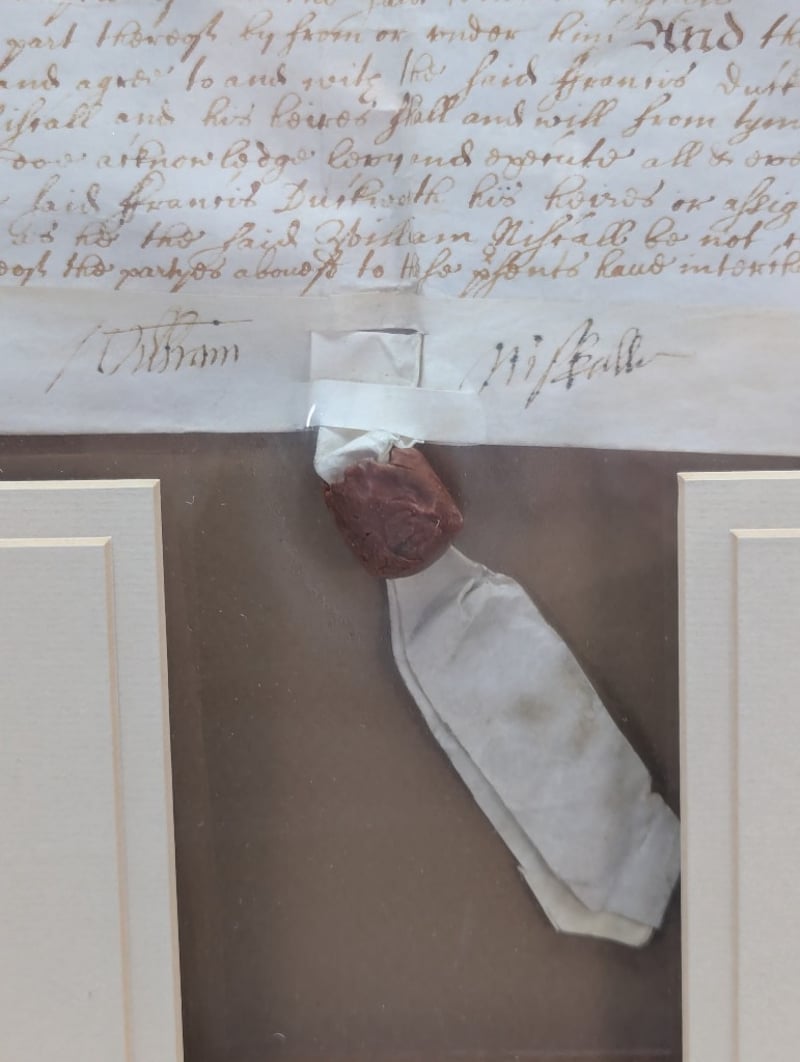 part thereof by from or under him And the
and agree to and with the said ffrancis Duck
and his heires shall and will from tym
doe acknowledge levy and execute all & eve
said ffrancis Duckworth his heires or assig
as he the said William Niskall be not
the partyes abovesd to these psents have interch
William Niskall